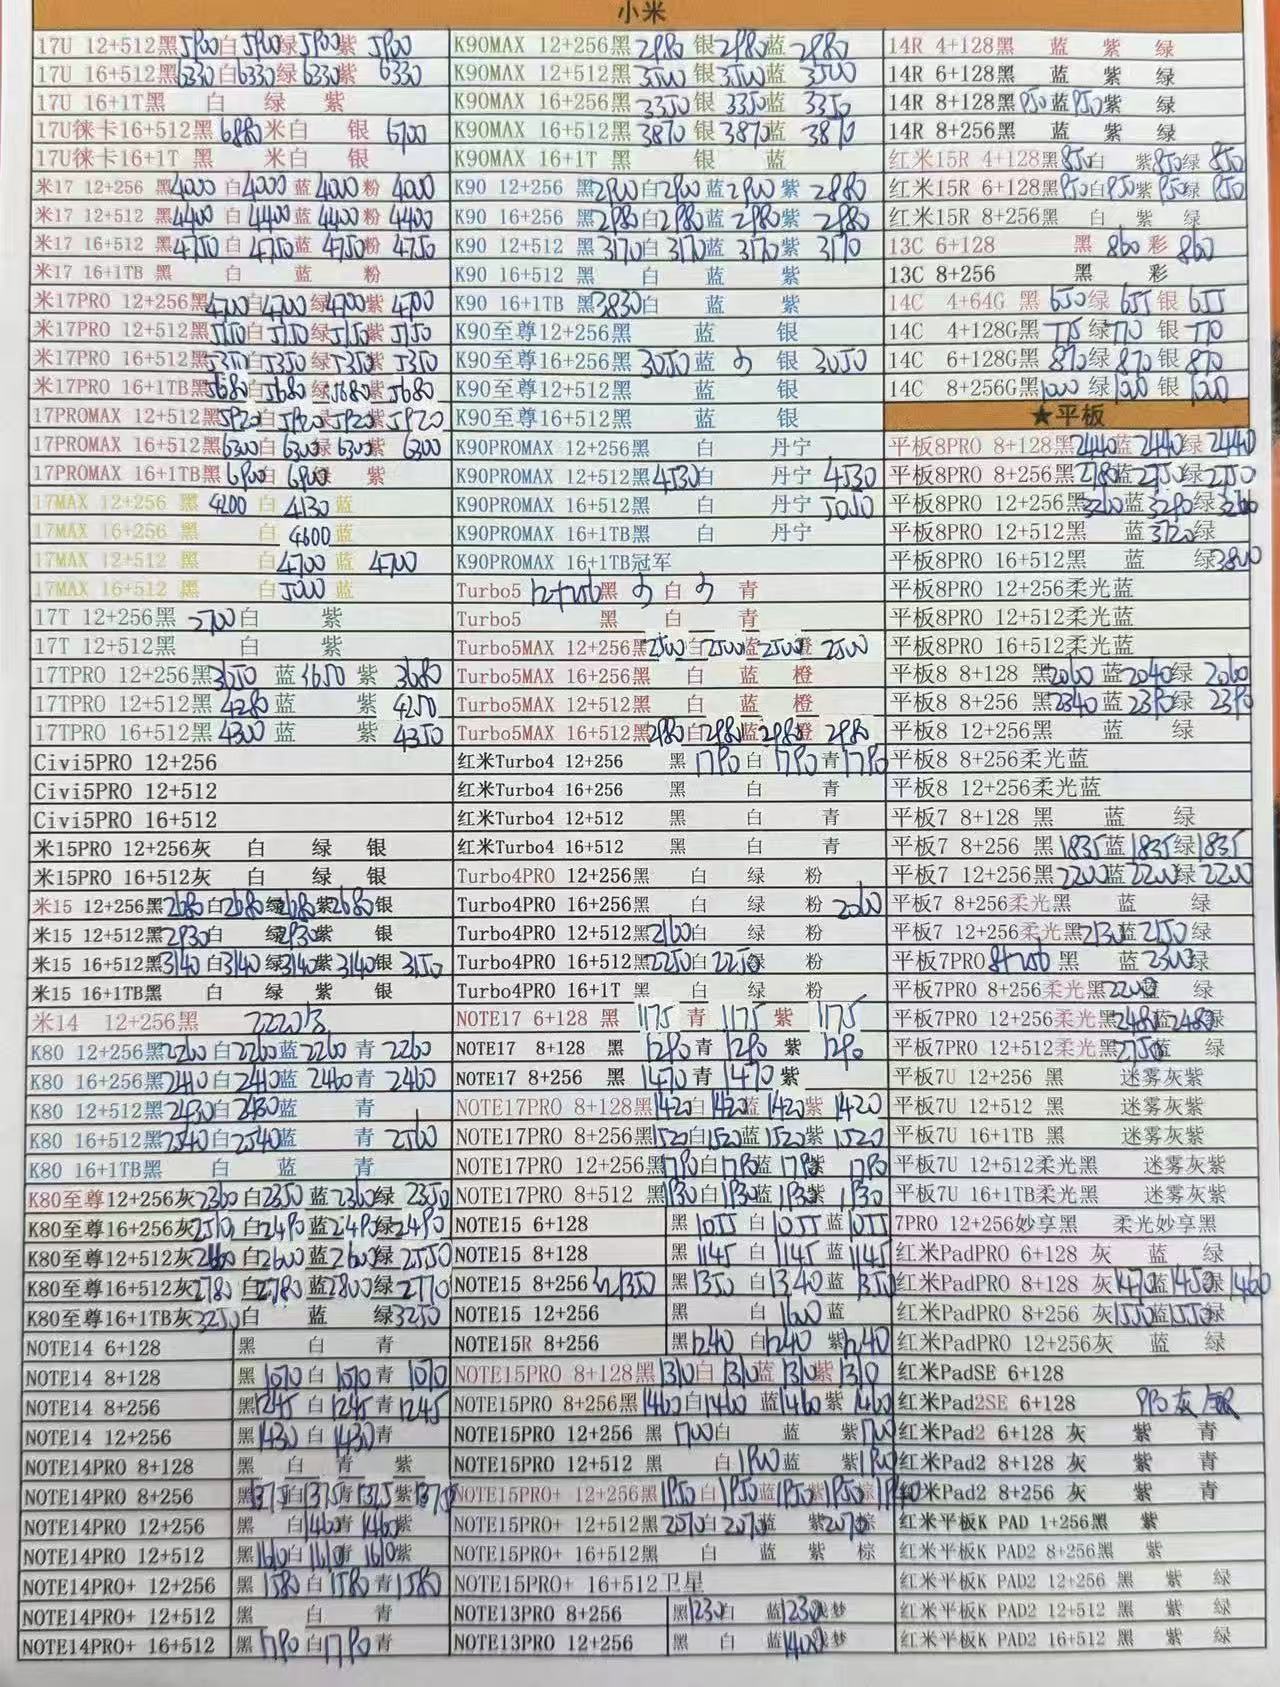 小米
17U 12+512黑5900白5900绿5900紫 5900
17U 16+512黑6330白6330绿6330紫 6330
17U 16+1T黑 白 绿 紫
17U徕卡16+512黑 6880 米白 银 6700
17U徕卡16+1T 黑 米白 银
米17 12+256 黑4000 白4000 蓝4000 粉 4000
米17 12+512 黑4400 白4400 蓝4400 粉 4400
米17 16+512 黑4750 白4750 蓝4750 粉 4750
米17 16+1TB 黑 白 蓝 粉
米17PRO 12+256黑4700白4700绿4700紫 4700
米17PRO 12+512黑5150白5150绿5150紫5150
米17PRO 16+512黑5350白5350绿5350紫5350
米17PRO 16+1TB黑5680白5680绿5680紫5680
17PROMAX 12+512黑5920白5920绿5920紫5920
17PROMAX 16+512黑6300白6300绿6300紫 6300
17PROMAX 16+1TB黑6900白6900绿 紫
17MAX 12+256 黑 4200 白 4130 蓝
17MAX 16+256 黑 白 4600 蓝
17MAX 12+512 黑 白4700 蓝 4700
17MAX 16+512 黑 白5000 蓝
17T 12+256黑 2700白 紫
17T 12+512黑 白 紫
17TPRO 12+256黑3650 蓝3650 紫 3680
17TPRO 12+512黑4280蓝 紫 4250
17TPRO 16+512黑4300蓝 紫 4350
Civi5PRO 12+256
Civi5PRO 12+512
Civi5PRO 16+512
米15PRO 12+256灰 白 绿 银
米15PRO 16+512灰 白 绿 银
米15 12+256黑2680白2680绿2680紫2680银
米15 12+512黑2930白 绿2930紫 银
米15 16+512黑3140白3140绿3140紫3140银 3150
米15 16+1TB黑 白 绿 紫 银
米14 12+256黑 2220
K80 12+256黑2260白2260蓝2260 青 2260
K80 16+256黑2410白2410蓝 2460青 2460
K80 12+512黑2430白2430蓝 青
K80 16+512黑2540白2540蓝 青 2560
K80 16+1TB黑 白 蓝 青
K80至尊12+256灰2360白2350蓝2360绿 2350
K80至尊16+256灰2510白2490蓝2490绿2490
K80至尊12+512灰2600白2600蓝2600绿2550
K80至尊16+512灰2780白2780蓝2800绿2770
K80至尊16+1TB灰3250白 蓝 绿3250
NOTE14 6+128 黑 白 青
NOTE14 8+128 黑 1070白 1070青 1070
NOTE14 8+256 黑1245白 1245青1245
NOTE14 12+256 黑1430白 1430青
NOTE14PRO 8+128 黑 白 青 紫
NOTE14PRO 8+256 黑1375白1375青1375紫1375
NOTE14PRO 12+256 黑 白1460青 1460紫
NOTE14PRO 12+512 黑1610白1610青 1610紫
NOTE14PRO+ 12+256 黑 1580白1580青1580
NOTE14PRO+ 12+512 黑 白 青
NOTE14PRO+ 16+512 黑1790白1790青
K90MAX 12+256黑2980 银2980蓝 2980
K90MAX 12+512黑3500 银3500蓝 3500
K90MAX 16+256黑3350 银 3350蓝 3350
K90MAX 16+512黑3870 银 3870蓝 3870
K90MAX 16+1T 黑 银 蓝
K90 12+256 黑2900白2900蓝2900紫 2880
K90 16+256 黑2980白2980蓝 2980紫 2980
K90 12+512 黑 3170白3170蓝 3170紫 3170
K90 16+512 黑 白 蓝 紫
K90 16+1TB 黑3830白 蓝 紫
K90至尊12+256黑 蓝 银
K90至尊16+256黑 3050蓝 银 3050
K90至尊12+512黑 蓝 银
K90至尊16+512黑 蓝 银
K90PROMAX 12+256黑 白 丹宁
K90PROMAX 12+512黑4530白 丹宁 4530
K90PROMAX 16+512黑 白 丹宁 5050
K90PROMAX 16+1TB黑 白 丹宁
K90PROMAX 16+1TB冠军
Turbo5 12+256黑 白 青
Turbo5 黑 白 青
Turbo5MAX 12+256黑2500白2500蓝2500橙 2500
Turbo5MAX 16+256黑 白 蓝 橙
Turbo5MAX 12+512黑 白 蓝 橙
Turbo5MAX 16+512黑2980白2980蓝2980橙 2980
红米Turbo4 12+256 黑 1790白 1790青1790
红米Turbo4 16+256 黑 白 青
红米Turbo4 12+512 黑 白 青
红米Turbo4 16+512 黑 白 青
Turbo4PRO 12+256黑 白 绿 粉
Turbo4PRO 16+256黑 白 绿 粉 2060
Turbo4PRO 12+512黑2160白 绿 粉
Turbo4PRO 16+512黑2250白2250绿 粉
Turbo4PRO 16+1T 黑 白 绿 粉
NOTE17 6+128 黑 1175 青 1175 紫 1175
NOTE17 8+128 黑 1290青 1290 紫 1290
NOTE17 8+256 黑 1470青 1470 紫
NOTE17PRO 8+128黑1420白1420蓝 1420紫 1420
NOTE17PRO 8+256黑1520白1520蓝 1520紫 1520
NOTE17PRO 12+256黑1790白1790蓝 1790紫 1790
NOTE17PRO 8+512 黑1930白 1930蓝 1930紫 1930
NOTE15 6+128 黑 1055白 1055蓝1055
NOTE15 8+128 黑 1145 白 1145蓝1145
NOTE15 8+256 1350 黑1350 白1340蓝 1350
NOTE15 12+256 黑 白 1600蓝
NOTE15R 8+256 黑1240 白1240 紫1240
NOTE15PRO 8+128黑1310白1310蓝1310紫1310
NOTE15PRO 8+256黑1460白1460 蓝1460紫 1460
NOTE15PRO 12+256 黑 1700白 蓝 紫1700
NOTE15PRO 12+512 黑 白1900蓝 紫1900
NOTE15PRO+ 12+256黑1950白1950蓝1950紫1950棕1940
NOTE15PRO+ 12+512黑2070白2070蓝 紫2070棕
NOTE15PRO+ 16+512黑 白 蓝 紫 棕
NOTE15PRO+ 16+512卫星
NOTE13PRO 8+256 黑1230白 蓝1230浅梦
NOTE13PRO 12+256 黑 白 蓝1400浅梦
14R 4+128黑 蓝 紫 绿
14R 6+128黑 蓝 紫 绿
14R 8+128黑950蓝950紫 绿
14R 8+256黑 蓝 紫 绿
红米15R 4+128黑850白 紫850绿 850
红米15R 6+128黑950白950紫950绿 950
红米15R 8+256黑 白 紫 绿
13C 6+128 黑 860彩 860
13C 8+256 黑 彩
14C 4+64G 黑 650绿 655银 655
14C 4+128G黑 775绿770 银 770
14C 6+128G黑 870绿870 银 870
14C 8+256G黑1000绿1000 银 1000
★平板
平板8PRO 8+128黑2440蓝 2440绿 2440
平板8PRO 8+256黑2780蓝2750绿2750
平板8PRO 12+256黑3260蓝3290绿3260
平板8PRO 12+512黑 蓝3720绿
平板8PRO 16+512黑 蓝 绿3800
平板8PRO 12+256柔光蓝
平板8PRO 12+512柔光蓝
平板8PRO 16+512柔光蓝
平板8 8+128 黑2060蓝2040绿 2060
平板8 8+256 黑2340蓝2390绿 2390
平板8 12+256黑 蓝 绿
平板8 8+256柔光蓝
平板8 12+256柔光蓝
平板7 8+128 黑 蓝 绿
平板7 8+256 黑1835蓝1835绿1835
平板7 12+256黑2200蓝2200绿 2200
平板7 8+256柔光黑 蓝 绿
平板7 12+256柔光黑2130蓝2150绿
平板7PRO 8+256 黑 蓝2300绿
平板7PRO 8+256柔光黑2200蓝 绿
平板7PRO 12+256柔光黑2480蓝2480绿
平板7PRO 12+512柔光黑2750蓝 绿
平板7U 12+256 黑 迷雾灰紫
平板7U 12+512 黑 迷雾灰紫
平板7U 16+1TB 黑 迷雾灰紫
平板7U 12+512柔光黑 迷雾灰紫
平板7U 16+1TB柔光黑 迷雾灰紫
7PRO 12+256妙享黑 柔光妙享黑
红米PadPRO 6+128 灰 蓝 绿
红米PadPRO 8+128 灰1470蓝1450绿1460
红米PadPRO 8+256 灰1550蓝1550绿
红米PadPRO 12+256灰 蓝 绿
红米PadSE 6+128
红米Pad2SE 6+128 990灰
红米Pad2 6+128 灰 紫 青
红米Pad2 8+128 灰 紫 青
红米Pad2 8+256 灰 紫 青
红米平板K PAD 1+256黑 紫
红米平板K PAD2 8+256黑 紫
红米平板K PAD2 12+256 黑 紫 绿
红米平板K PAD2 12+512 黑 紫 绿
红米平板K PAD2 16+512 黑 紫 绿